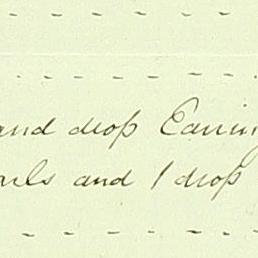 and drop Earring
arls and 1 drop